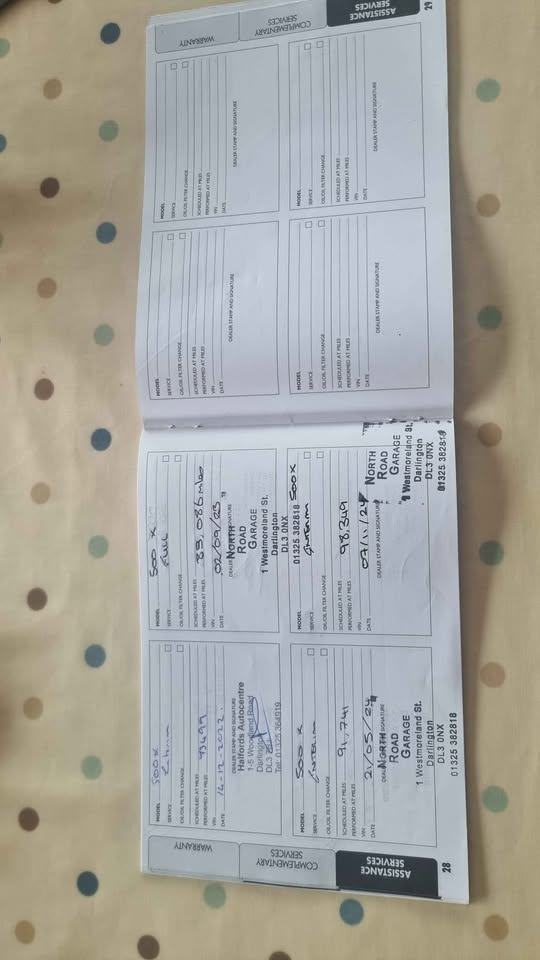 WARRANTY
COMPLEMENTARY
SERVICES
ASSISTANCE
SERVICES
28
MODEL 500X
SERVICE
OIL/OIL FILTER CHANGE
SCHEDULED AT MILES
PERFORMED AT MILES 73499
VIN
DATE 14-12-2022.
DEALER STAMP AND SIGNATURE
Halfords Autocentre
1-5 Woodland Road
Darlington
DL3
Tel: 01325 364919
MODEL 500 X
SERVICE FULL
OIL/OIL FILTER CHANGE
SCHEDULED AT MILES
PERFORMED AT MILES 83,086 miles
VIN
DATE 02/09/23
DEALER SIGNATURE
NORTH
ROAD
GARAGE
1 Westmoreland St.
Darlington
DL3 0NX
01325 382818
MODEL 500 X
SERVICE Interim
OIL/OIL FILTER CHANGE
SCHEDULED AT MILES
PERFORMED AT MILES 91,741
VIN
DATE 21/05/24
DEALER AND SIGNATURE
NORTH
ROAD
GARAGE
1 Westmoreland St.
Darlington
DL3 0NX
01325 382818
MODEL 500 X
SERVICE Interim
OIL/OIL FILTER CHANGE
SCHEDULED AT MILES
PERFORMED AT MILES 98,349
VIN
DATE 07/11/24
DEALER STAMP AND SIGNATURE
NORTH
ROAD
GARAGE
1 Westmoreland St.
Darlington
DL3 0NX
01325 382818
MODEL
SERVICE
OIL/OIL FILTER CHANGE
SCHEDULED AT MILES
PERFORMED AT MILES
VIN
DATE
DEALER STAMP AND SIGNATURE
MODEL
SERVICE
OIL/OIL FILTER CHANGE
SCHEDULED AT MILES
PERFORMED AT MILES
VIN
DATE
DEALER STAMP AND SIGNATURE
MODEL
SERVICE
OIL/OIL FILTER CHANGE
SCHEDULED AT MILES
PERFORMED AT MILES
VIN
DATE
DEALER STAMP AND SIGNATURE
MODEL
SERVICE
OIL/OIL FILTER CHANGE
SCHEDULED AT MILES
PERFORMED AT MILES
VIN
DATE
DEALER STAMP AND SIGNATURE
WARRANTY
COMPLEMENTARY
SERVICES
ASSISTANCE
SERVICES
29